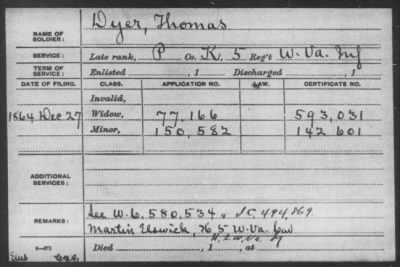 NAME OF SOLDIER: Dyer, Thomas
SERVICE: Late rank, P Co. K, 5 Reg't W. Va. Inf
TERM OF SERVICE: Enlisted , 1 Discharged , 1
DATE OF FILING. CLASS. APPLICATION NO. LAW. CERTIFICATE NO.
Invalid,
1864 Dec 27 Widow, 77,166 593,031
Minor, 150,582 142 601
ADDITIONAL SERVICES:
REMARKS: See W.C. 580,534
Martin Elswick, K 5 W. Va.
Died , 1 , at